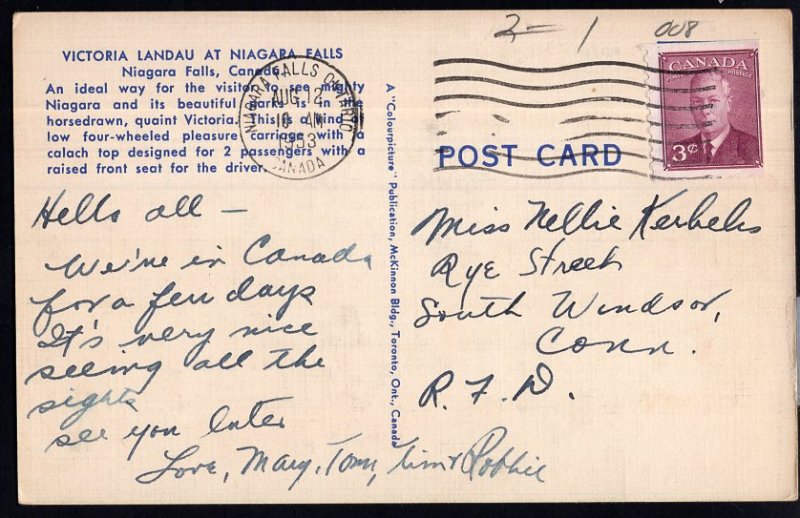 2 = 1 008
VICTORIA LANDAU AT NIAGARA FALLS
Niagara Falls, Canada
An ideal way for the visitor to see mighty
Niagara and its beautiful parks is in the
horsedrawn, quaint Victoria. This is a kind of
low four-wheeled pleasure carriage with a
calach top designed for 2 passengers with a
raised front seat for the driver.
NIAGARA FALLS ONTARIO
AUG 12
10 AM
1953
CANADA
CANADA
POSTES POSTAGE
3¢
POST CARD
A "Colourpicture" Publication, McKinnon Bldg., Toronto, Ont., Canada
Hello all —
We're in Canada
for a few days
It's very nice
seeing all the
sights
see you later
Love, Mary, Tom, Tim & Robbie
Miss Nellie
Rye Street
South Windsor,
Conn.
R. F. D.